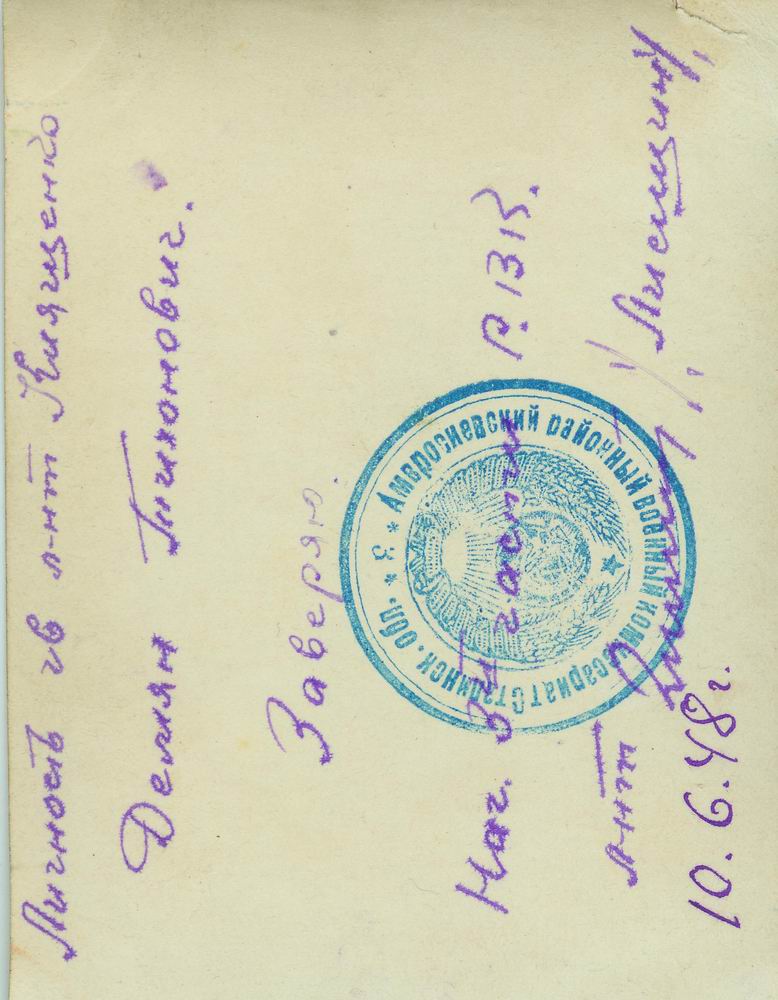 Личность гв л-нт Кнященко
Демян Тихонович.
Заверяю.
Нач. 3й части Р.В.К.
л-нт / Лисицин /
10.6.48 г.
* Амвросиевский районный военный комиссариат Сталинск. обл. * 3